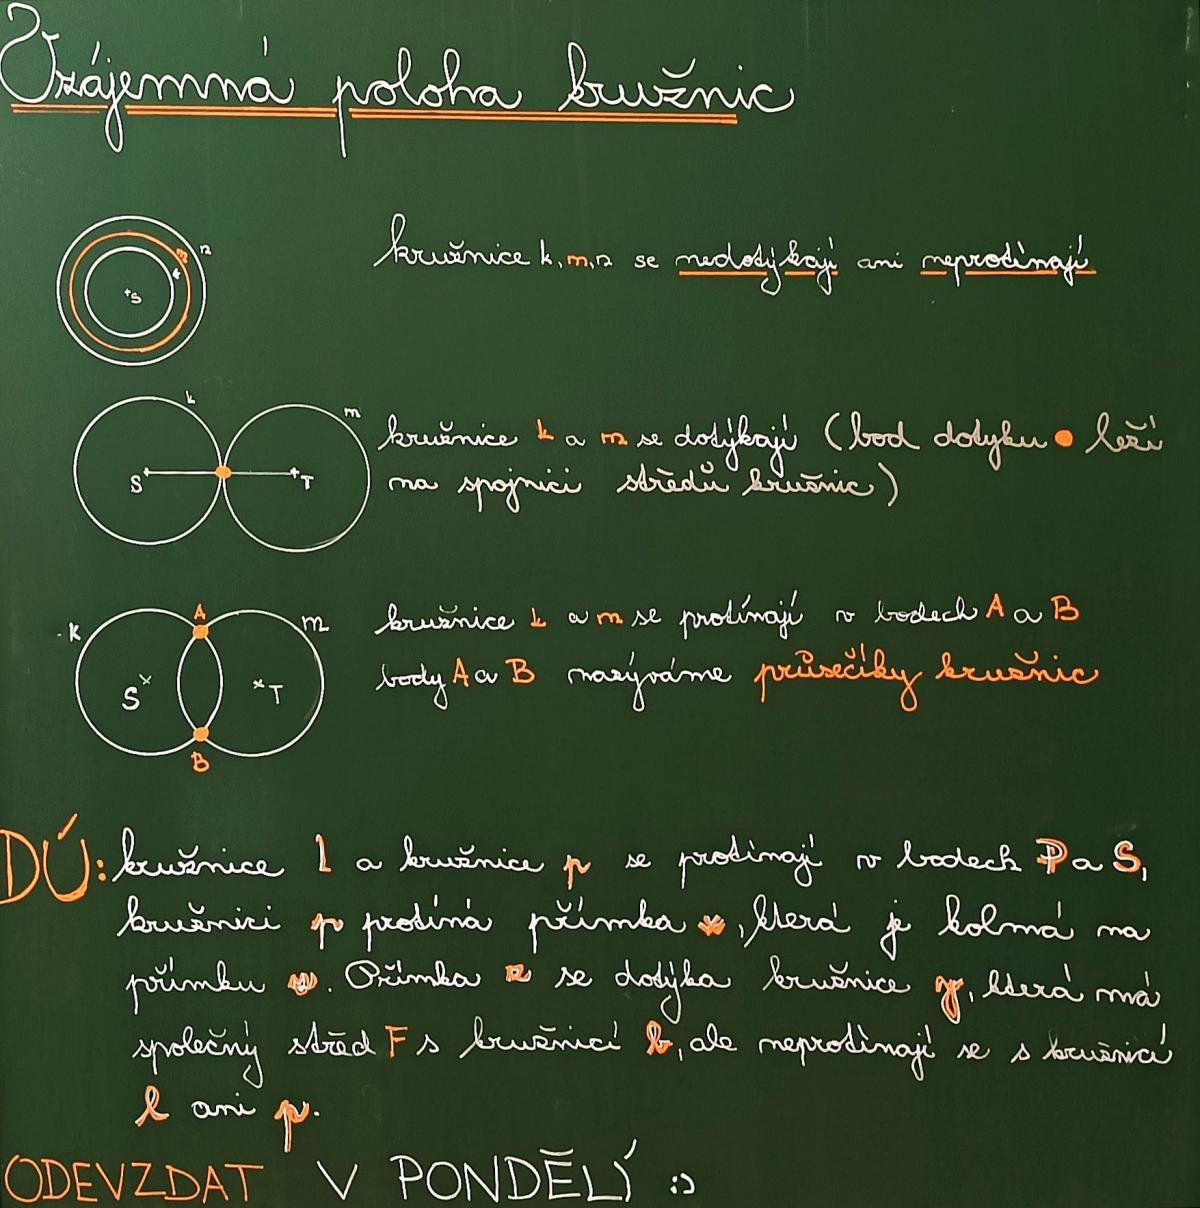 Vzájemná poloha kružnic
n
m
k
S
kružnice k, m, n se nedotýkají ani neprotínají
k
m
S
T
kružnice k a m se dotýkají (bod dotyku leží
na spojnici středů kružnic)
A
k
m
S
T
B
kružnice k a m se protínají v bodech A a B
body A a B nazýváme průsečíky kružnic
DÚ: kružnice l a kružnice p se protínají v bodech P a S,
kružnici p protíná přímka, která je kolmá na
přímku. Přímka se dotýka kružnice, která má
společný střed F s kružnicí, ale neprotínají se s kružnicí
l ani p.
ODEVZDAT V PONDĚLÍ :)